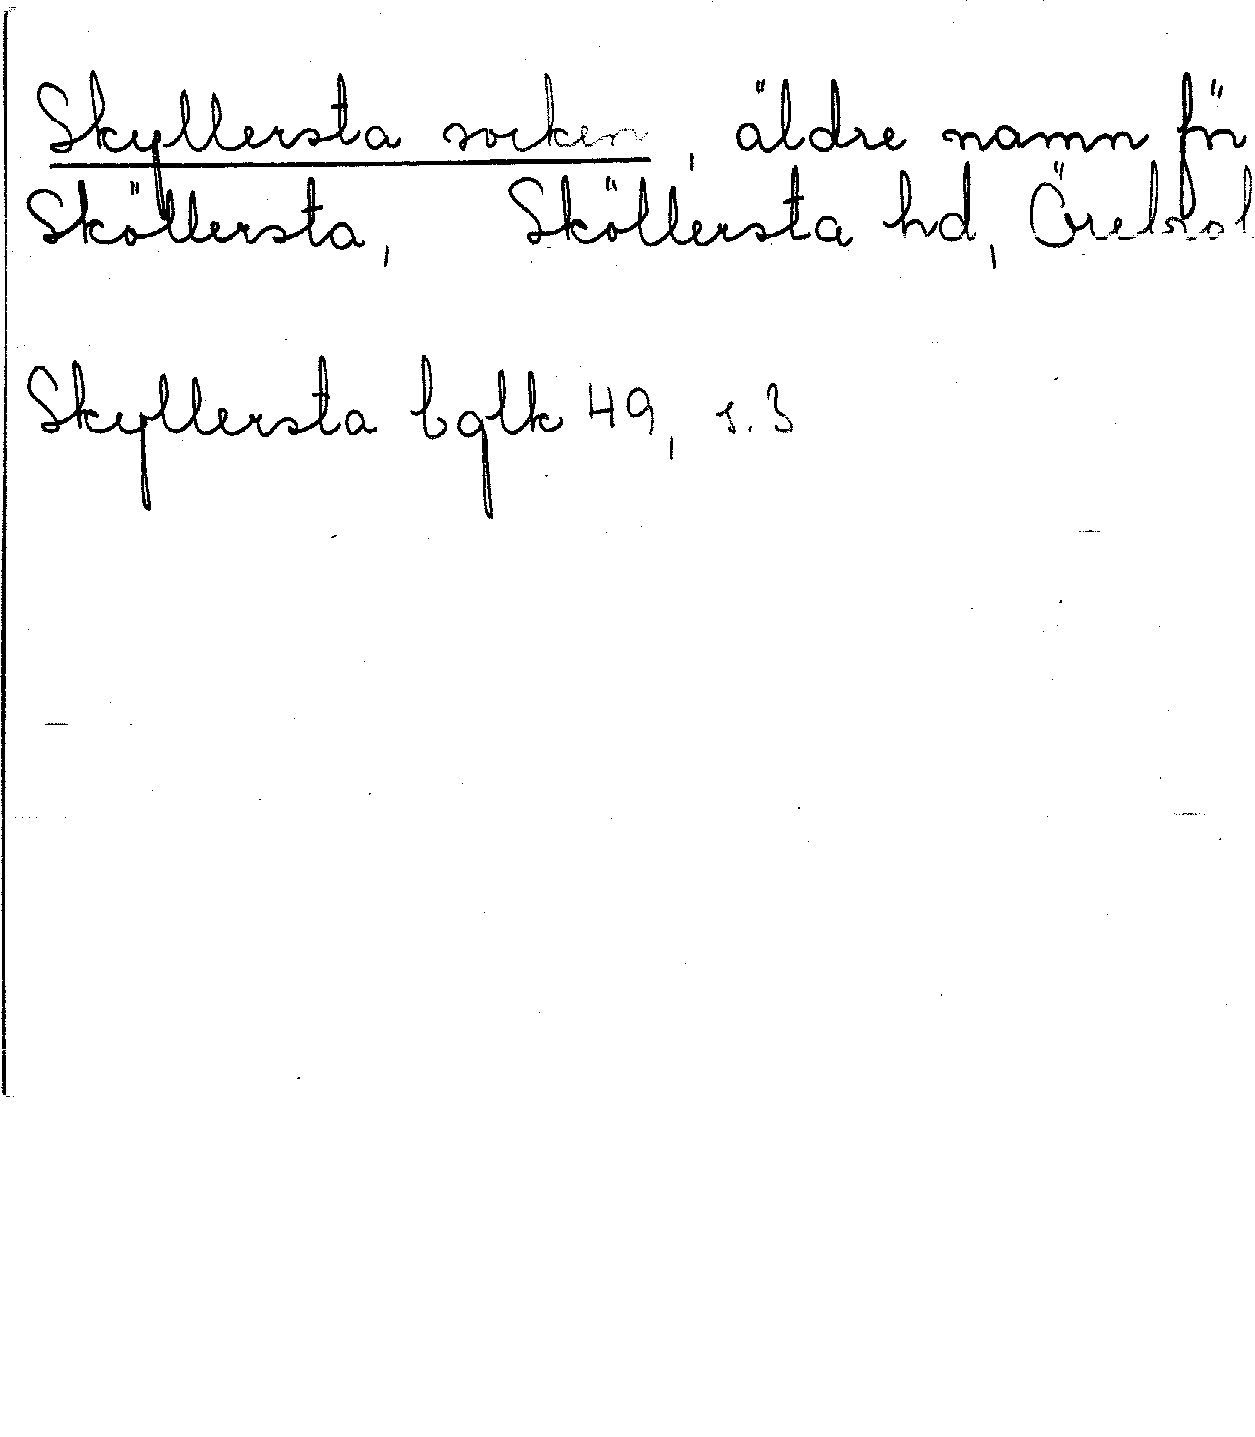 Skyllersta socken, äldre namn för
Sköllersta, Sköllersta hd,
Skyllersta bglk 49, s. 3